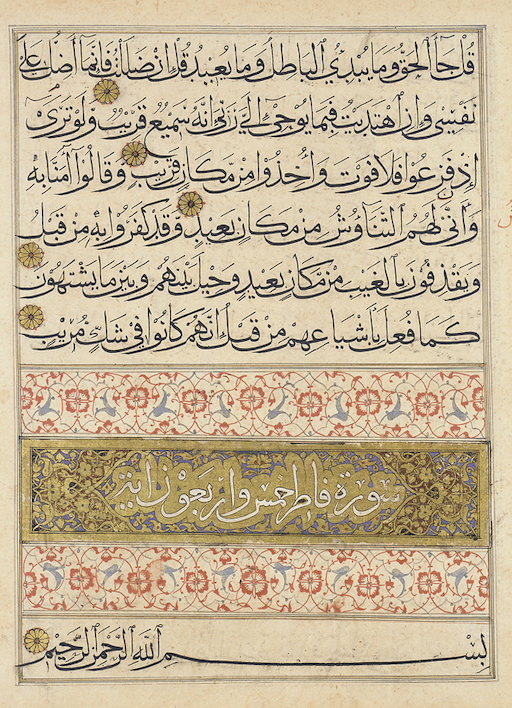 قُلْ جَآءَ ٱلْحَقُّ وَمَا يُبْدِئُ الْبَاطِلُ وَمَا يُعِيدُ قُلْ اِنْ ضَلَلْتُ فَاِنَّمَآ اَضِلُّ عَلٰى
نَفْسِى وَاِنِ ٱهْتَدَيْتُ فَبِمَا يُوحِىٓ اِلَىَّ رَبِّى اِنَّهُ سَمِيعٌ قَرِيبٌ وَلَوْ تَرٰىٓ
اِذْ فَزِعُوا فَلَا فَوْتَ وَاُخِذُوا مِنْ مَكَانٍ قَرِيبٍ وَقَالُوٓا اٰمَنَّا بِهٖ
وَاَنّٰى لَهُمُ التَّنَاوُشُ مِنْ مَكَانٍ بَعِيدٍ وَقَدْ كَفَرُوا بِهٖ مِنْ قَبْلُ
وَيَقْذِفُونَ بِالْغَيْبِ مِنْ مَكَانٍ بَعِيدٍ وَحِيلَ بَيْنَهُمْ وَبَيْنَ مَا يَشْتَهُونَ
كَمَا فُعِلَ بِاَشْيَاعِهِمْ مِنْ قَبْلُ اِنَّهُمْ كَانُوا فِى شَكٍّ مُرِيبٍ
سورة فاطر خمس واربعون اية
بِسْمِ اللّٰهِ الرَّحْمٰنِ الرَّحِيمِ